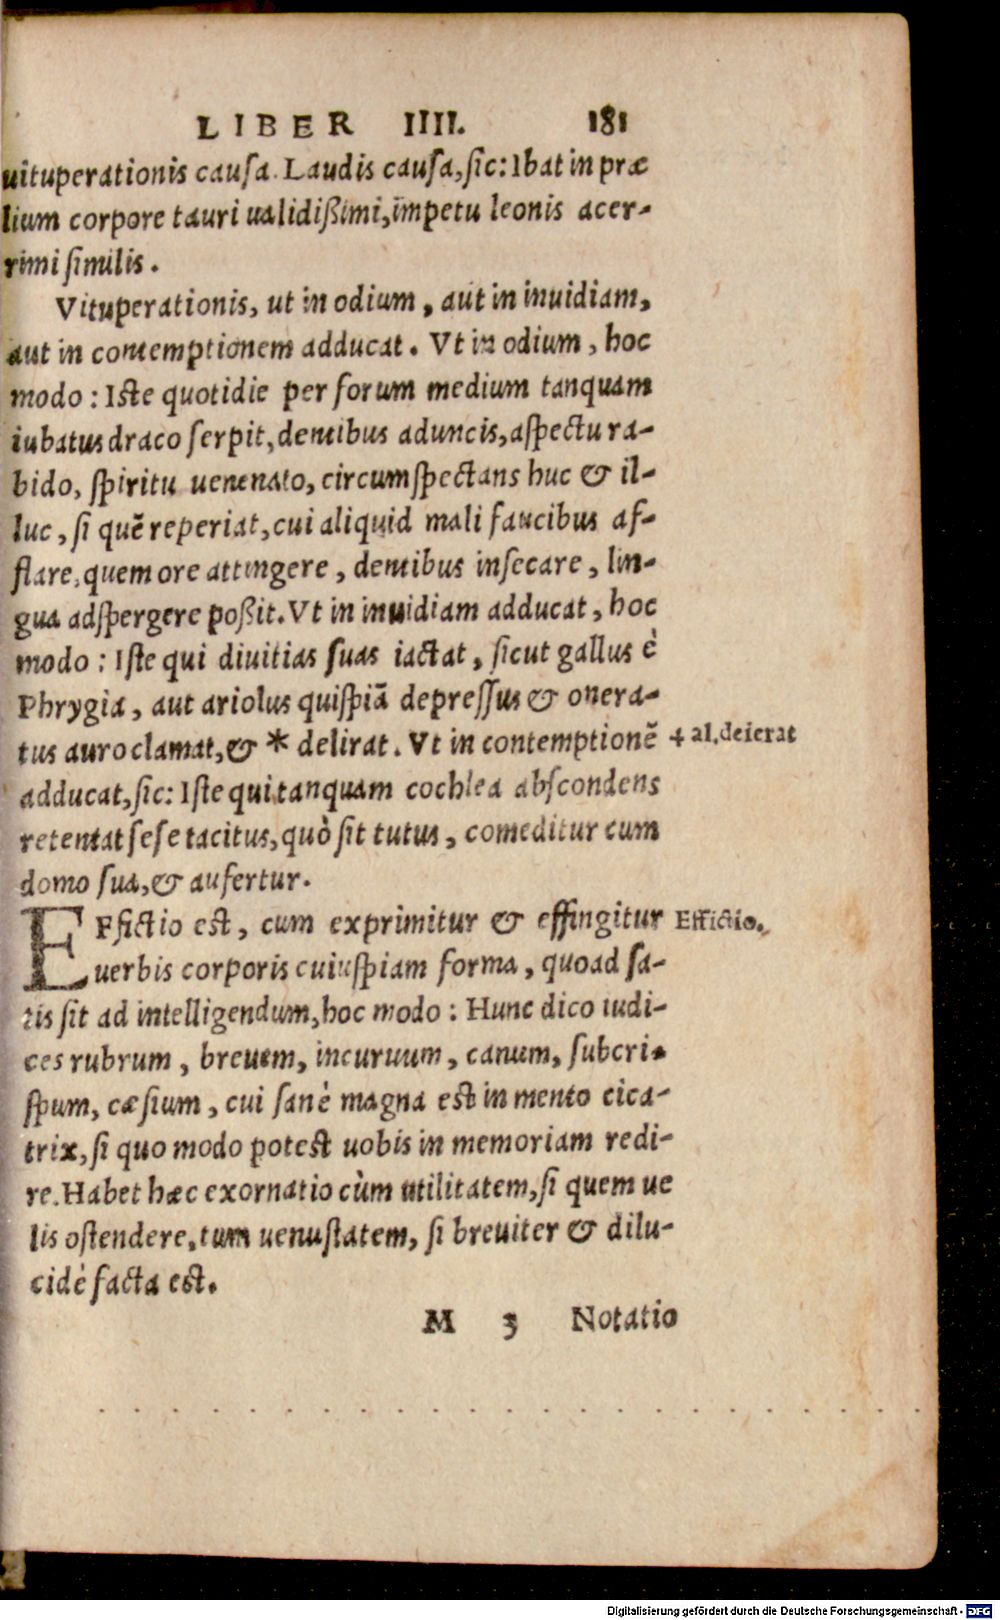 LIBER IIII. 181
uituperationis causa. Laudis causa, sic: Ibat in præ
lium corpore tauri ualidißimi, impetu leonis acer-
rimi similis.
Vituperationis, ut in odium, aut in inuidiam,
aut in contemptionem adducat. Vt in odium, hoc
modo: Iste quotidie per forum medium tanquam
iubatus draco serpit, dentibus aduncis, aspectu ra-
bido, spiritu uenenato, circumspectans huc & il-
luc, si quẽ reperiat, cui aliquid mali faucibus af-
flare, quem ore attingere, dentibus insecare, lin-
gua adspergere poßit. Vt in inuidiam adducat, hoc
modo: Iste qui diuitias suas iactat, sicut gallus è
Phrygia, aut ariolus quispiã depressus & onera-
tus auro clamat, & * delirat. Vt in contemptionẽ
4 al. deierat
adducat, sic: Iste qui tanquam cochlea abscondens
retentat sese tacitus, quò sit tutus, comeditur cum
domo sua, & aufertur.
EFfictio est, cum exprimitur & effingitur
Effictio.
uerbis corporis cuiuspiam forma, quoad sa-
tis sit ad intelligendum, hoc modo: Hunc dico iudi-
ces rubrum, breuem, incuruum, canum, subcri-
spum, cæsium, cui sanè magna est in mento cica-
trix, si quo modo potest uobis in memoriam redi-
re. Habet hæc exornatio cùm utilitatem, si quem ue
lis ostendere, tum uenustatem, si breuiter & dilu-
cidè facta est.
M 3 Notatio
Digitalisierung gefördert durch die Deutsche Forschungsgemeinschaft - DFG